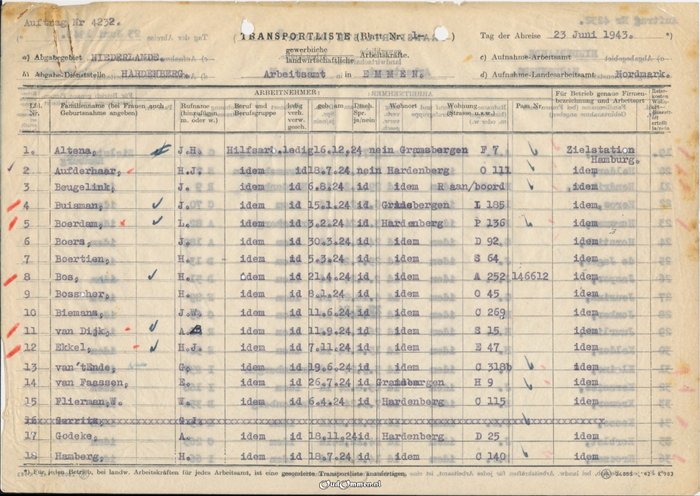 Auftrag Nr 4232.
TRANSPORTLISTE (Blatt Nr. 1.)
Tag der Abreise 23 Juni 1943.
a) Abgabegebiet NIEDERLANDE.
gewerbliche
landwirtschaftliche Arbeitskräfte.
c) Aufnahme-Arbeitsamt
b) Abgabe-Dienststelle HARDENBERG.
Arbeitsamt in EMMEN.
d) Aufnahme-Landesarbeitsamt Nordmark.
ARBEITNEHMER:
Lfd. Nr. Familienname (bei Frauen auch Geburtsname angeben) Rufname (hinzufügen m. oder w.) Beruf und Berufsgruppe ledig verh. verw. gesch. geb. am Dtsch. Spr. ja/nein Wohnort Wohnung (Strasse u.s.w.) Pass Nr. Für Betrieb genaue Firmenbezeichnung und Arbeitsort
1. Altena, J.H. Hilfsarb. ledig 16.12.24 nein Gramsbergen F 7 Zielstation Hamburg.
2 Aufderhaar, H.J. idem id 18.7.24 nein Hardenberg O 111 idem
3 Beugelink, J. idem id 6.8.24 id idem R aan/boord idem
4 Buisman, J. idem id 15.1.24 id Gramsbergen I 185 idem
5 Boerdam, L. idem id 3.2.24 id Hardenberg P 136 idem
6 Boers, J. idem id 30.3.24 id idem D 92 idem
7 Boertien, H. idem id 5.3.24 id idem S 64 idem
8 Bos, H. idem id 21.4.24 id idem A 252 146612 idem
9 Bosscher, H. idem id 8.1.24 id idem O 45 idem
10 Biemans, J.W. idem id 11.6.24 id idem C 269 idem
11 van Dijk, idem id 11.9.24 id idem S 15 idem
12 Ekkel, H.J. idem id 7.11.24 id idem E 47 idem
13 van 't Ende, G. idem id 19.6.24 id idem C 318b idem
14 van Faassen, E. idem id 26.7.24 id Gramsbergen H 9 idem
15 Flierman, W. W. idem id 6.4.24 id Hardenberg C 115 idem
16 Gerrits, G.J.
17 Godeke, A. idem id 18.11.24 id Hardenberg D 25 idem
18 Hamberg, H. idem id 18.7.24 id idem C 140 idem
*) Für jeden Betrieb, bei landw. Arbeitskräften für jedes Arbeitsamt, ist eine gesonderte Transportliste anzufertigen.
OudOmmen.nl